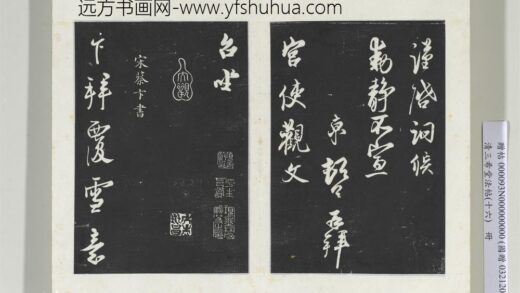 远方书画网-www.yfshuhua.com
謹啓詞候
動靜不宣
京 拜
宮使觀文
台坐
宋蔡卞書
卞拜覆雪意
贈帖 000093N000000000
清三希堂法帖(十六) 冊